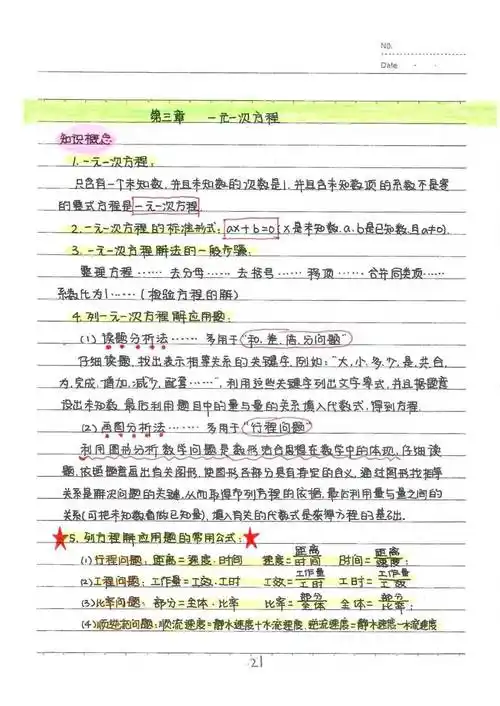 No.
Date · ·
第三章 一元一次方程
知识概念
1.一元一次方程:
只含有一个未知数,并且未知数的次数是1,并且含未知数项的系数不是零
的整式方程是一元一次方程.
2.一元一次方程的标准形式: ax+b=0(x是未知数,a、b是已知数,且a≠0).
3.一元一次方程解法的一般步骤:
整理方程……去分母……去括号……移项……合并同类项……
系数化为1……(检验方程的解)
4.列一元一次方程解应用题:
(1)读题分析法……多用于"和,差,倍,分问题"
仔细读题,找出表示相等关系的关键字,例如:"大,小,多,少,是,共,合,
为,完成,增加,减少,配套……",利用这些关键字列出文字等式,并且根据题意
设出未知数,最后利用题目中的量与量的关系填入代数式,得到方程.
(2)画图分析法……多用于"行程问题"
利用图形分析数学问题是数形结合思想在数学中的体现,仔细读
题,依照题意画出有关图形,使图形各部分具有特定的含义,通过图形找相等
关系是解决问题的关键,从而取得布列方程的依据,最后利用量与量之间的
关系(可把未知数看做已知量),填入有关的代数式是获得方程的基础.
★5.列方程解应用题的常用公式:★
(1)行程问题: 距离=速度·时间 速度=距离/时间 时间=距离/速度;
(2)工程问题: 工作量=工效·工时 工效=工作量/工时 工时=工作量/工效
(3)比率问题: 部分=全体·比率 比率=部分/全体 全体=部分/比率;
(4)顺逆流问题: 顺流速度=静水速度+水流速度,逆流速度=静水速度-水流速度
21